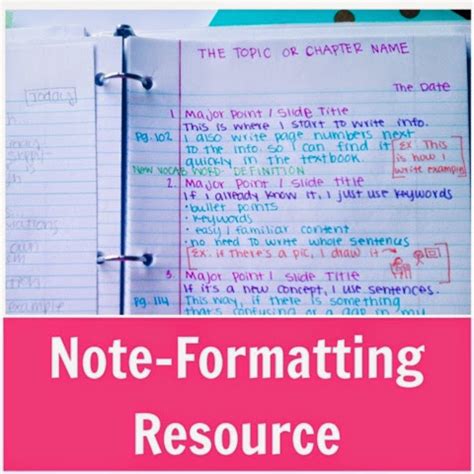 THE TOPIC OR CHAPTER NAME
The Date
1. Major Point / Slide Title
This is where I start to write info.
Pg. 102 I also write page numbers next
to the info. so I can find it
quickly in the textbook.
Ex. This
is how I
write examples
NEW VOCAB WORD- DEFINITION
2. Major Point / Slide Title
If I already know it, I just use keywords
•bullet points
•keywords
• easy / familiar content
• no need to write whole sentences
Ex. if there's a pic, I draw it
3. Major Point / Slide Title
If it's a new concept, I use sentences.
Pg. 114 This way, if there is something
that's confusing or a gap in my
Note-Formatting
Resource